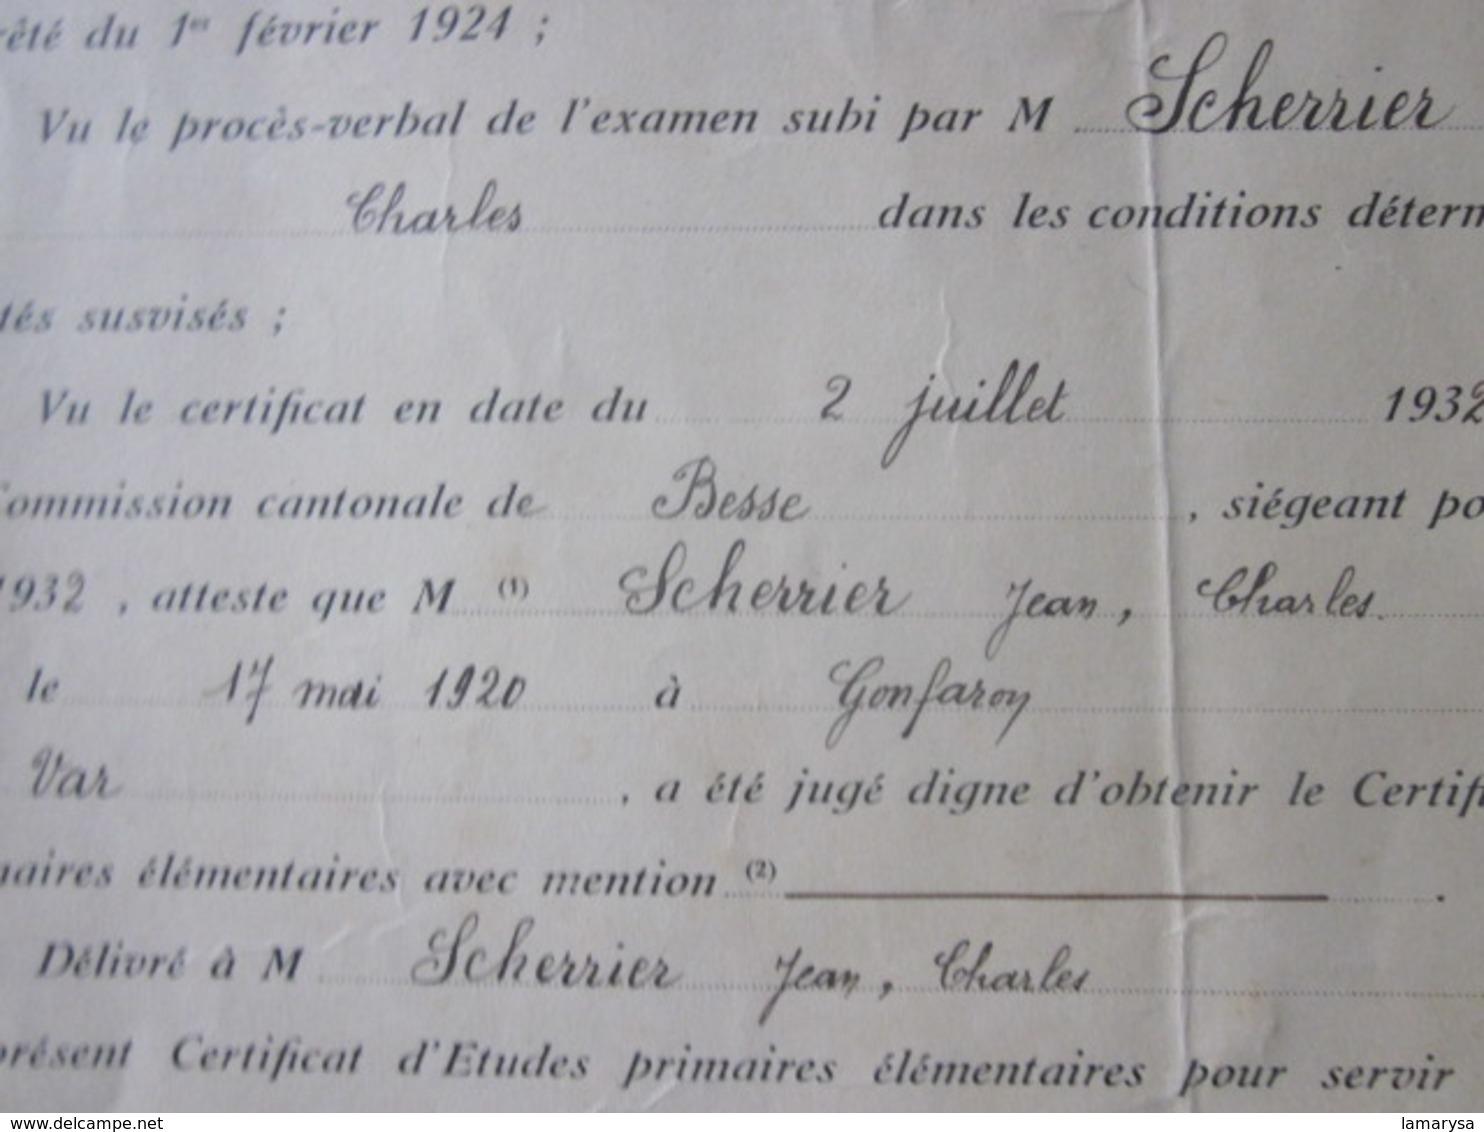 rêté du 1er février 1924 ;
Vu le procès-verbal de l'examen subi par M Scherrier
Charles dans les conditions déterm
tés susvisés ;
Vu le certificat en date du 2 juillet 1932
Commission cantonale de Besse, siégeant po
1932, atteste que M (1) Scherrier Jean, Charles.
le 17 mai 1920 à Gonfaron
Var, a été jugé digne d'obtenir le Certifi
maires élémentaires avec mention (2) .
Délivré à M Scherrier Jean, Charles
présent Certificat d'Etudes primaires élémentaires pour servir
www.delcampe.net lamarysa